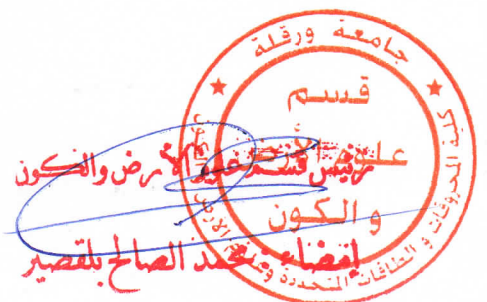 جامعة ورقلة
كلية المحروقات و الطاقات المتجددة وعلوم الأرض والكون
قسم
علوم الأرض
و الكون
رئيس قسم علوم الأرض والكون
إمضاء: محمد الصالح بلقصير